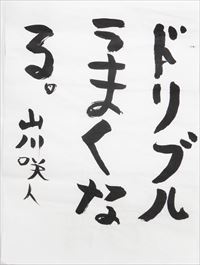 ドリブル
うまくな
る。
山川咲人